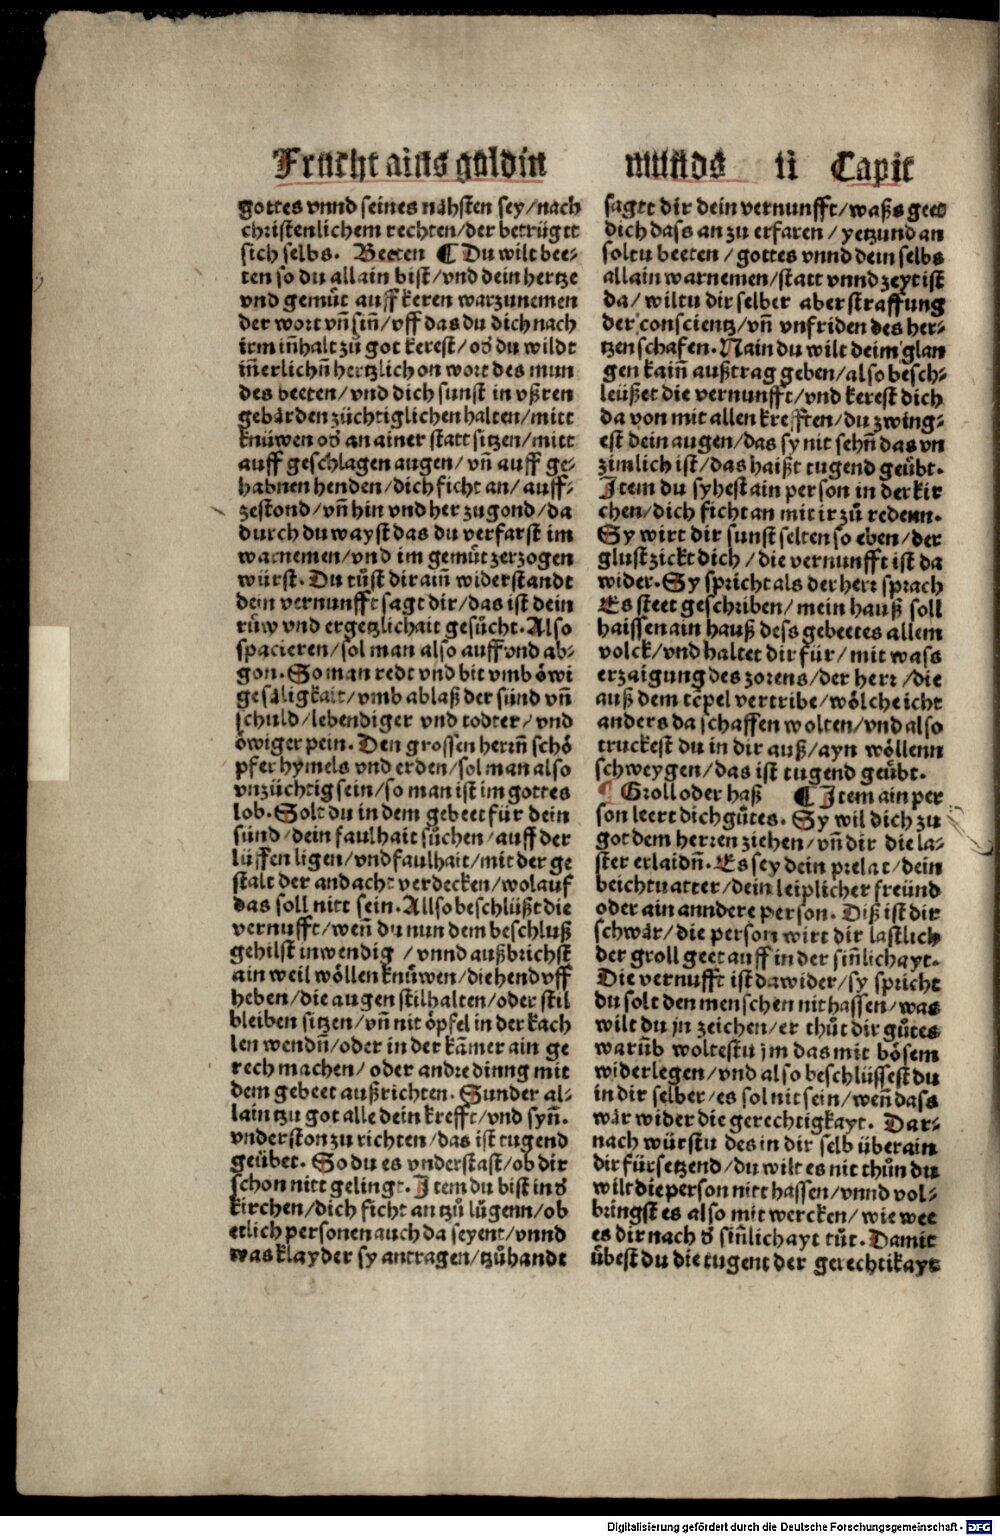 Frucht ains guldin munds ii Capit
gottes vnnd seines nähsten sey/nach
christenlichem rechten/der betrügtt
sich selbs. Beeten ¶ Du wilt bee-
ten so du allain bist/vnd dein hertze
vnd gemüt auff keren warzunemen
der wort vñ siñ/vff das du dich nach
irm iñhalt zů got kerest/od̕ du wildt
iñerlichñ hertzlich on wort des mun
des beeten/vnd dich sunst in vßren
gebärden züchtiglichen halten/mitt
knüwen od̕ an ainer statt sitzen/mitt
auff geschlagen augen/vñ auff ge-
habnen henden/dich ficht an/auff-
zestond/vñ hin vnd her zugond/da
durch du wayst das du verfarst im
warnemen/vnd im gemüt zerzogen
würst. Du tůst dir aiñ widerstandt
dein vernunfft sagt dir/das ist dein
růw vnd ergetzlichait gesůcht. Also
spacieren/sol man also auff vnd ab-
gon. So man redt vnd bit vmb öwi
ge säligkait/vmb ablaß der sünd vñ
schuld/lebendiger vnd todter/vnd
öwiger pein. Den grossen herrñ schö
pfer hymels vnd erden/sol man also
vnzüchtig sein/so man ist im gottes
lob. Solt du in dem gebeet für dein
sünd/dein faulhait sůchen/auff der
lüssen ligen/vnd faulhait/mit der ge
stalt der andacht verdecken/wolauf
das soll nitt sein. Allso beschlüßt die
vernufft/weñ du nun dem beschluß
gehilst inwendig/vnnd außbrichst
ain weil wöllen knüwen/die hend vff
heben/die augen stilhalten/oder stil
bleiben sitzen/vñ nit öpfel in der kach
len wendñ/oder in der kämer ain ge
rech machen/oder andre dinng mit
dem gebeet außrichten. Sunder al-
lain tzu got alle dein krefft/vnd syñ.
vnderston zu richten/das ist tugend
geübet. So du es vnderstast/ob dir
schon nitt gelingt. Item du bist in d̕
kirchen/dich ficht an tzů lůgenn/ob
etlich personen auch da seyent/vnnd
was klayder sy antragen/tzůhandt
sagtt dir dein vernunfft/waßs geet
dich dass an zu erfaren/yetzund an
soltu beeten/gottes vnnd dein selbs
allain warnemen/statt vnnd zeyt ist
da/wiltu dir selber aber straffung
der conscientz/vñ vnfriden des her-
tzen schafen. Nain du wilt deim glan
gen kaiñ außtrag geben/also besch-
leüßet die vernunfft/vnd kerest dich
da von mit allen krefften/du zwing-
est dein augen/das sy nit sehñ das vn
zimlich ist/das haißt tugend geübt.
Item du syhest ain person in der kir
chen/dich ficht an mit ir zů redenn.
Sy wirt dir sunst selten so eben/der
glust zickt dich/die vernunfft ist da
wider. Sy spricht als der herr sprach
Es steet geschriben/mein hauß soll
haissen ain hauß dess gebeetes allem
volck/vnd haltet dir für/mit wass
erzaigung des zorens/der herr/die
auß dem tēpel vertribe/wölche icht
anders da schaffen wolten/vnd also
truckest du in dir auß/ayn wöllenn
schweygen/das ist tugend geübt.
¶ Groll oder haß ¶ Item ain per
son leert dich gůtes. Sy wil dich zu
got dem herren ziehen/vñ dir die la-
ster erlaidñ. Es sey dein prelat/dein
beichtuatter/dein leiplicher freünd
oder ain anndere person. Diß ist dir
schwär/die person wirt dir lästlich
der groll geet auff in der siñlichayt.
Die vernufft ist dawider/sy spricht
du solt den menschen nit hassen/was
wilt du jn zeichen/er thůt dir gůtes
warūb woltestu jm das mit bösem
widerlegen/vnd also beschlüssest du
in dir selber/es sol nit sein/weñ dass
wär wider die gerechtigkayt. Dar-
nach würstu des in dir selb überain
dir fürsetzend/du wilt es nit thůn du
wilt die person nitt hassen/vnnd vol-
bringst es also mit wercken/wie wee
es dir nach d̕ siñlichayt tůt. Damit
übest du die tugent der gerechtikayt
Digitalisierung gefördert durch die Deutsche Forschungsgemeinschaft - DFG